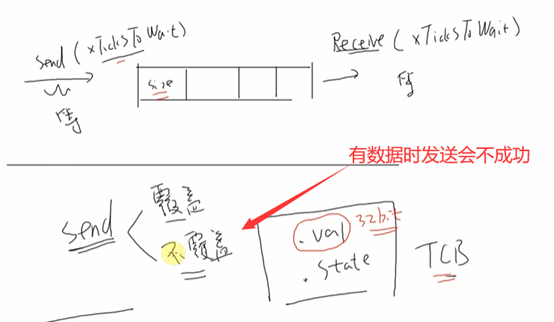 send (xTicksToWait)
等
size
Receive (xTicksToWait)
等
有数据时发送会不成功
send
覆盖
不覆盖
.val
32bit
.state
TCB